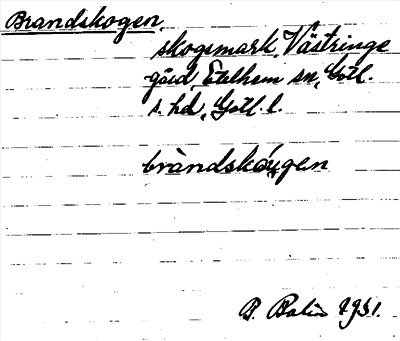 Brandskogen,
skogsmark, Västringe
gård, Etelhem sn, Gotl.
s. hd, Gotl. l.
bràndskåu̯gen
B. Bolin 1931.